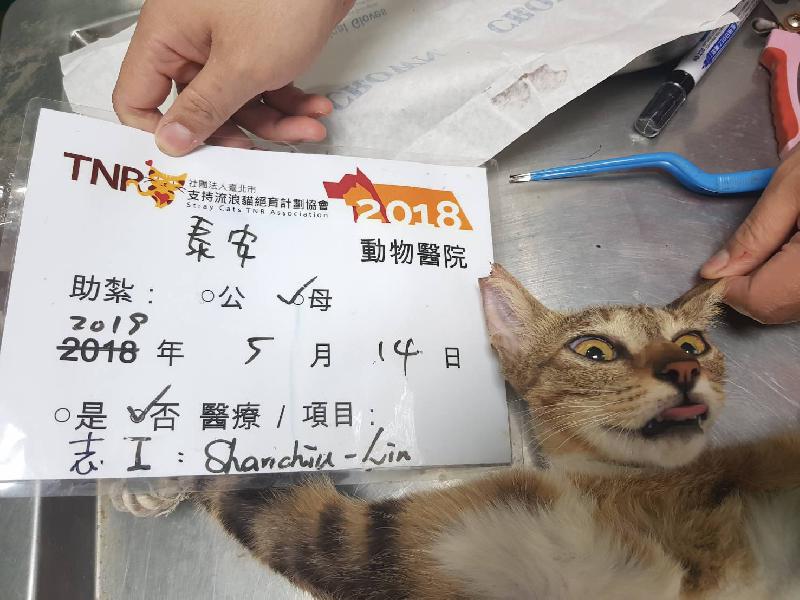 CROWN
CROWN
TNR 社團法人臺北市
支持流浪貓絕育計劃協會
Stray Cats TNR Association
2018
泰安 動物醫院
助紮：○公 ✓○母
2019
2018 年 5 月 14 日
○是 ✓○否 醫療 / 項目：
志工：Shanchiu-Lin